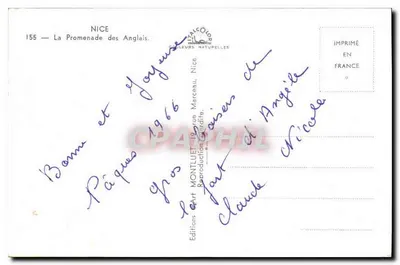 NICE
155 — La Promenade des Anglais.
COULEURS NATURELLES
IMPRIMÉ
EN
FRANCE
Editions d'Art MONTLUET, Marceau, Nice
Reproduction interdite
Bonne et Joyeuse
Pâques 1966
Gros baisers de
la part d'Angèle
Claude Nicole